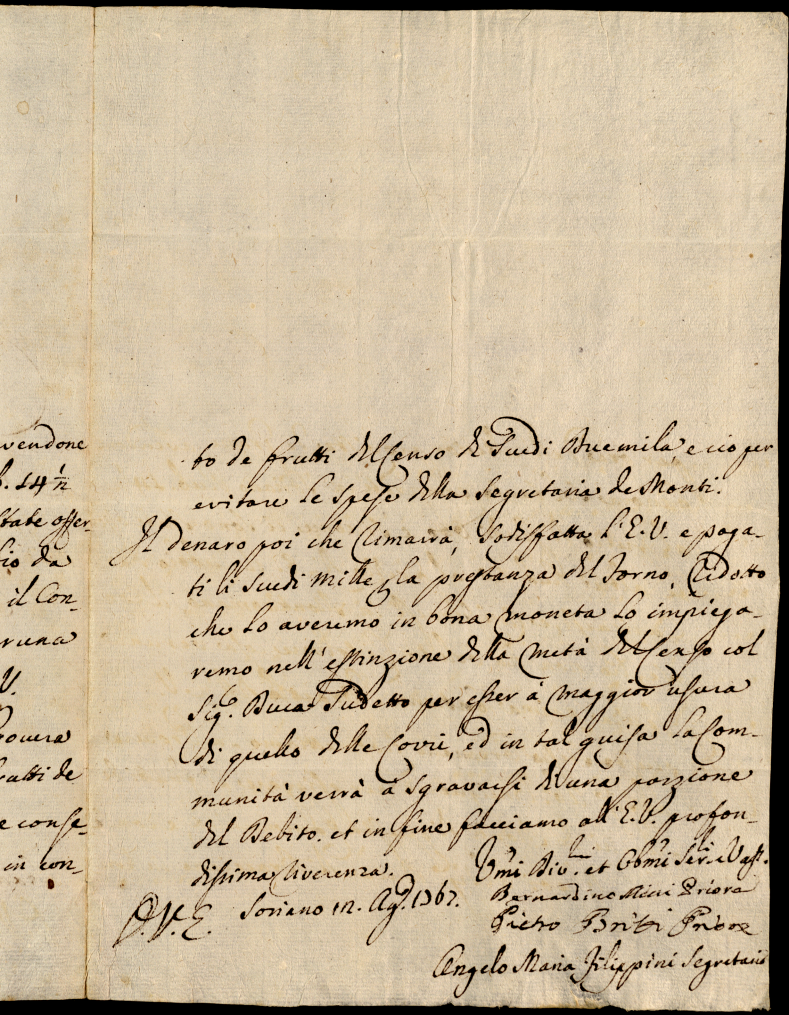 vendone
. 14 ½
state offer-
io da
il Con-
runa
V.
overa
rutti de
e conse-
in con-
to de frutti del Censo di Scudi Duemila, e ciò per
evitare le spese della Segretaria de Monti.
Il denaro poi che rimarrà, sodisfatta l'E. V. e paga-
ti li scudi mille, la prestanza del Forno, ridotto
che lo averemo in bona moneta lo impiega-
remo nell'estinzione della metà del Censo col
Sig.r Duca sudetto per esser à maggior usura
di quello delle Corui, ed in tal guisa la Com-
munità verrà à sgravarsi di una porzione
del Debito. et in fine facciamo all'E. V. profon-
dissima riverenza.
D. V. E. Soriano 12. Ag. 1767.
Umi Div.mi et Obmi Ser.i e Vass.
Bernardino Ricci Priore
Pietro Britti Priore
Angelo Maria Filippini Segretario